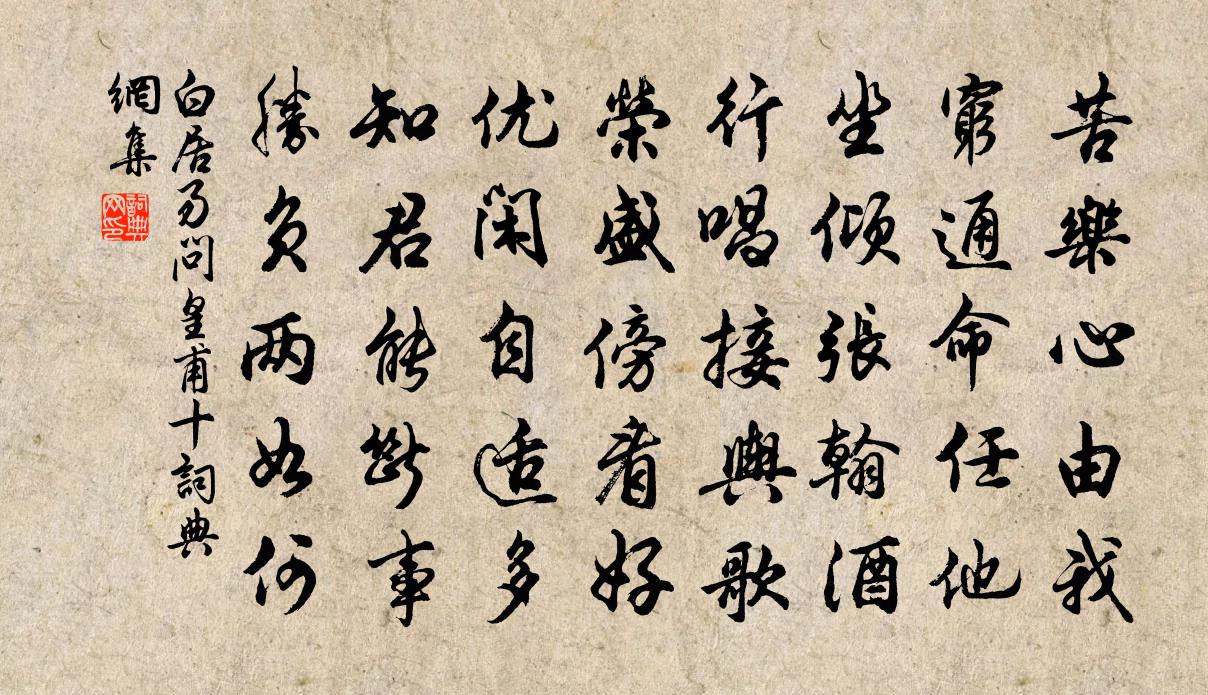 苦樂心由我
窮通命任他
坐傾張翰酒
行唱接輿歌
榮盛傍看好
优閑自适多
知君能斷事
勝負两如何
白居易問皇甫十詞典
網集
詞典网印